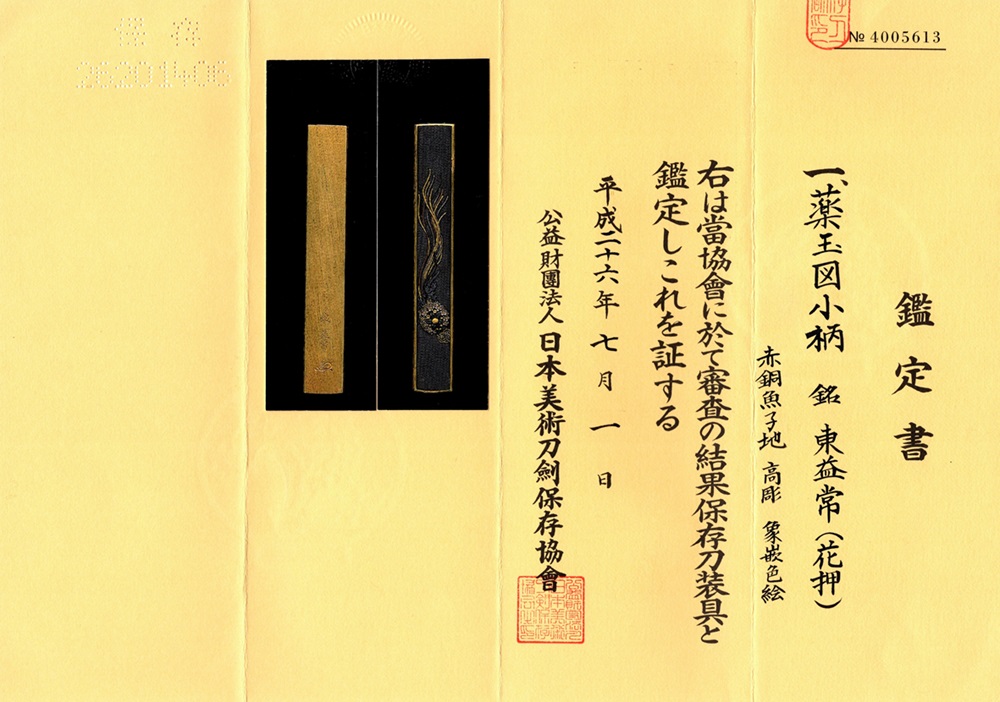 № 4005613
鑑定書
一、薬玉図小柄 銘 東益常(花押)
赤銅魚子地 高彫 象嵌色絵
右は當協會に於て審査の結果保存刀装具と
鑑定しこれを証する
平成二十六年 七月 一日
公益財團法人 日本美術刀劍保存協會
保存
26201406